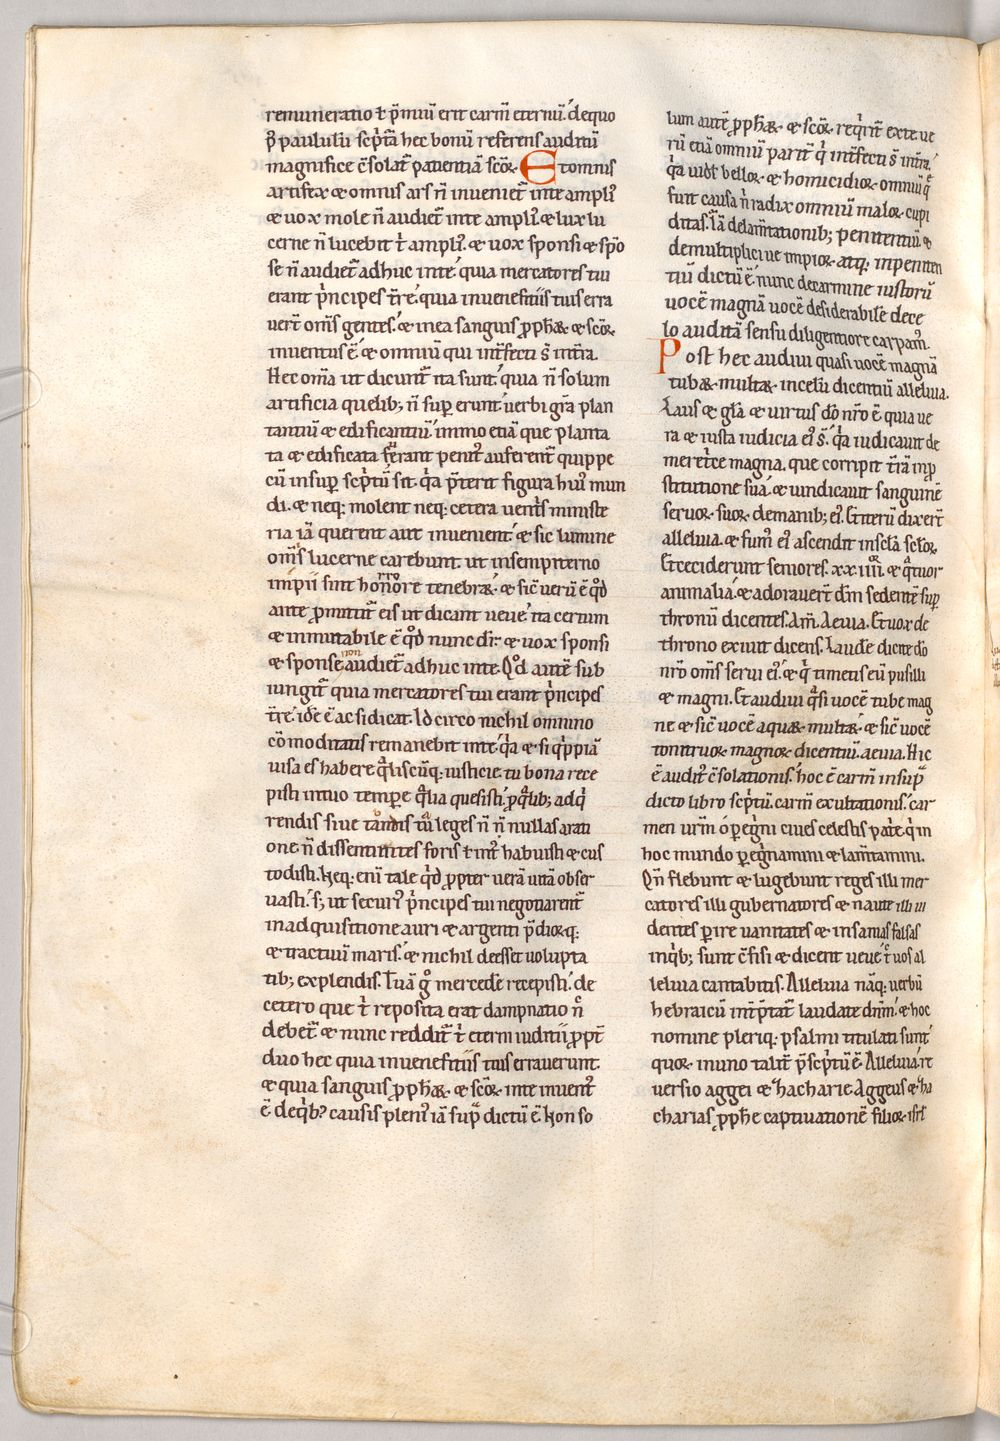 remuneratio ł p̄miū erit carm̄ eternū. de quo
p̄ paululū sc̄pta hec bonū referens auditū
magnifice c̄solat̄ patientiā sc̄oꝝ. Et omnis
artifex & omnis ars n̄ inueniet̄ in te ampliꝰ
& uox mole n̄ audiet̄ in te ampliꝰ. & lux lu
cerne n̄ lucebit t̄ ampliꝰ. & uox sponsi & spō
se n̄ audiet̄ adhuc in te. quia mercatores tui
erant p̄ncipes t̄re. quia in ueneficiis tuis erra
uer̄t om̄s gentes. & in ea sanguis ꝓph&aꝝ & sc̄oꝝ
inuentus ē & omniū qui int̄fecti s̄ in t̄ra.
Hec om̄a ut dicunt̄ ita sunt. quia n̄ solum
artificia quelib; n̄ suꝑerunt. uerbi gr̄a plan
tantiū & edificantiū. immo etiā que planta
ta & edificata fuerant penitꝰ auferent̄ quippe
cū insuꝑ sc̄ptū sit. q̄a p̄terit figura huiꝰ mun
di. & neq; molent neq; cetera uent̄s ministe
ria iā querent aut inuenient. & sic lumine
om̄s lucerne carebunt. ut in sempiterno
impii sint horrore tenebraꝝ. & sic̄ uerū ē qd̄
ante ꝓmittit̄ eis ut dicant ueue. ita certum
& inmutabile ē qd̄ nunc dr̄. & uox sponsi
& sponse non audiet̄ adhuc in te. Qd̄ autē sub
iungit̄ quia mercatores tui erant p̄ncipes
t̄re. idē ē ac si dicat. Idcirco nichil omnino
cōmoditatis remanebit in te. q̄a & si q̄ppiā
uisa es habere q̄liscūq; iusticie. tu bona rece
pisti in tuo tempe q̄lia quesisti. ꝓ q̄lib; adq̄
rendis siue tuis leges n̄ n̄ nullas arati
one n̄ dissentientes foris ł int̄ habuisti & cus
todisti. Neq; eni tale qd̄ ꝓpter uerā uitā obser
uasti. s; ut securiꝰ p̄ncipes tui negotiarent̄
in adquisitione auri & argenti p̄dioꝝq;
& tractuū maris. & nichil deesset uolupta
tib; explendis. Tuā g̊ mercedē recepisti. de
cetero que t̄ reposita erat dampnatio n̄
debet̄. & nunc reddit̄ t̄ eterni iuditii ꝓpt̄
duo hec quia in ueneficiis tuis errauerunt.
& quia sanguis ꝓph&aꝝ & sc̄oꝝ in te inuent̄
ē. de q̄bꝰ causis pleniꝰ iā sup̄ dictū ē. Non so
lum autē ꝓph&aꝝ & sc̄oꝝ req̄rit̄ ex te ue
rū etiā omniū parit̄ q̄ int̄fecti s̄ in t̄ra.
q̄a uidꝫ belloꝝ & homicidioꝝ omniū q̄
sunt causa n̄ radix omniū maloꝝ cupi
ditas. Iā de lam̄tationib; penitentiū &
de multiplici ue impioꝝ atq; inpeniten
tiū dictū ē. nunc de carmine iustorū
uocē magnā uocē desiderabilē de ce
lo auditā sensu diligentiore carpam̄.
Post hec audiui quasi uocē magnā
tubaꝝ multaꝝ in celū dicentiū alleluia.
Laus & gl̄a & uirtus dō nr̄o ē. quia ue
ra & iusta iudicia eiꝰ s̄. q̄a iudicauit de
meret̄ce magna. que corripit t̄rā in ꝓ
stitutione sua. & uindicauit sanguinē
seruoꝝ suoꝝ de manib; eiꝰ. Et iterū dixer̄t
alleluia. & fumꝰ eiꝰ ascendit in sc̄la sc̄loꝝ.
Et ceciderunt seniores. xx.iiii. & q̄tuor
animalia. & adorauer̄t dm̄ sedentē suꝑ
thronū dicentes. Am̄. Aeuia. Et uox de
throno exiuit dicens. Laudē dicite dō
nr̄o om̄s serui eiꝰ. & q̄ timetis eū pusilli
& magni. Et audiui q̄si uocē tube mag
ne & sic̄ uocē aquaꝝ multaꝝ. & sic̄ uocē
tonitruoꝝ magnoꝝ dicentiū. aeuia. Hic
ē auditꝰ c̄solationis. hoc ē carm̄ in sup̄
dicto libro sc̄ptū. carm̄ exultationis. car
men urm̄ o ꝑegni ciues celestis pat̄e. q̄ in
hoc mundo ꝑegnamini & lam̄tamini.
Qn̄ flebunt & lugebunt reges illi mer
catores illi gubernatores & naute illi ui
dentes ꝑire uanitates & insanias falsas
in q̄b; sunt c̄fisi & dicent ueue. t̄ uos al
leluia cantabitis. Alleluia nāq; uerbū
hebraicū int̄p̄tat̄ laudate dn̄m. & hoc
nomine pleriq; psalmi titulati sunt
quoꝝ in uno talit̄ p̄sc̄ptū ē. Alleluia. re
uersio aggei & zhacharie. Aggeus & zha
charias ꝓph̄e captiuationē filioꝝ isrl̄